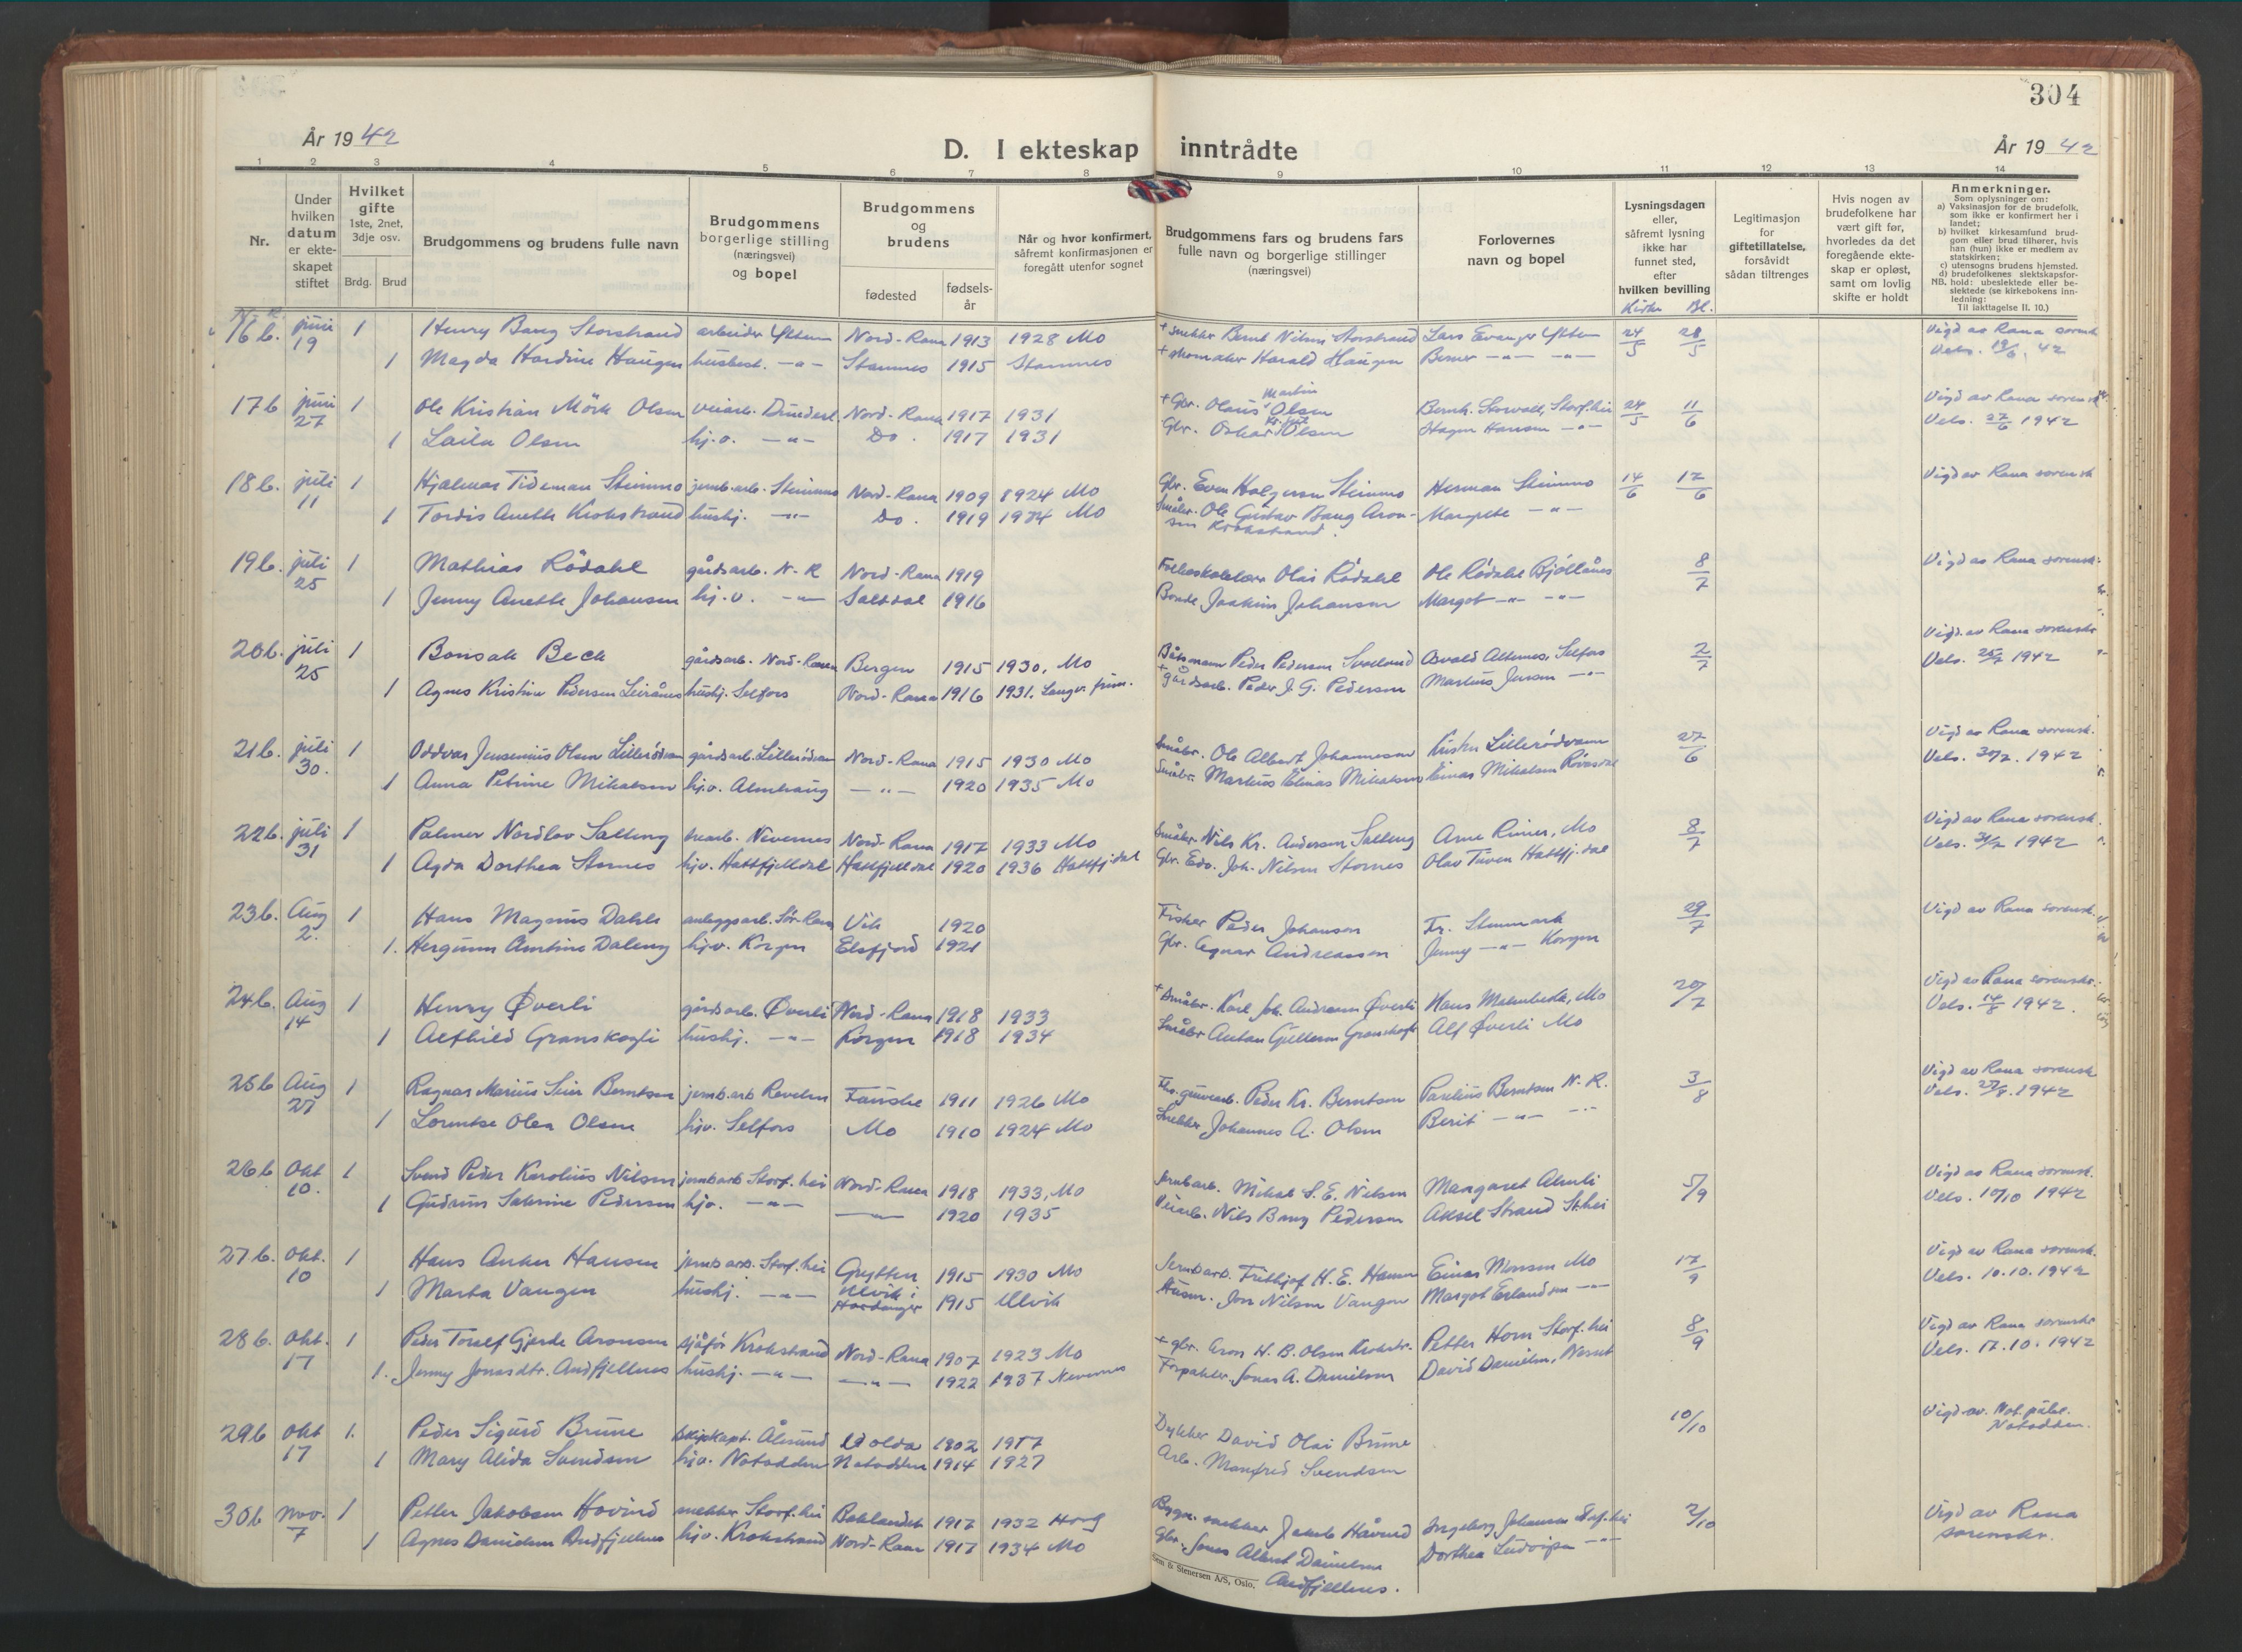 304
År 1942
D. I ekteskap inntrådte
År 1942
1 2 3 4 5 6 7 8 9 10 11 12 13 14
Nr.
Under
hvilken
datum
er ekte-
skapet
stiftet
Hvilket
gifte
1ste, 2net,
3dje osv.
Brdg. Brud
Brudgommens og brudens fulle navn
Brudgommens
borgerlige stilling
(næringsvei)
og bopel
Brudgommens
og
brudens
fødested
fødsels-
år
Når og hvor konfirmert,
såfremt konfirmasjonen er
foregått utenfor sognet
Brudgommens fars og brudens fars
fulle navn og borgerlige stillinger
(næringsvei)
Forlovernes
navn og bopel
Lysningsdagen
eller,
såfremt lysning
ikke har
funnet sted,
efter
hvilken bevilling
Kirke Bl.
Legitimasjon
for
giftetillatelse,
forsåvidt
sådan tiltrenges
Hvis nogen av
brudefolkene har
vært gift før,
hvorledes da det
foregående ekte-
skap er opløst,
samt om lovlig
skifte er holdt
Anmerkninger.
Som oplysninger om:
a) Vaksinasjon for de brudefolk,
som ikke er konfirmert her i
landet;
b) hvilket kirkesamfund brud-
gom eller brud tilhører, hvis
han (hun) ikke er medlem av
statskirken;
c) utensogns brudens hjemsted.
d) brudefolkenes slektskapsfor-
NB. hold: ubeslektede eller be-
slektede (se kirkebokens inn-
ledning:
Til iakttagelse II. 10.)
16 b. juni 19 1 Henry Bang Storstrand arbeider Ytteren Nord-Rana 1913 1928 Mo + snekker Bernt Nilsen Storstrand Lars Evenger Ytteren 24/5 28/5 Vigd av Rana sorensk
1 Magda Hardine Haugen husbest. -"- Stamnes 1915 Stamnes + skomaker Harald Haugen Berner -"- -"- Vels. 19/6. 42
17 b juni 27 1 Ole Kristian Mörk Olsen veiarb. Dunderl. Nord-Rana 1917 1931 + Gbr. Olaus Martin Olsen Bernh. Storvoll, Storf.hei 24/5 11/6 Vigd av Rana sorensk.
1 Laila Olsen hj.v. -"- Do. 1917 1931 Gbr. Oskar Olsen Hagen Hansen -"- Vels. 27/6 1942
18 b. juli 11 1 Hjalmar Tideman Steinmo jernb.arb. Steinmo Nord-Rana 1909 1924 Mo Gbr. Even Holgersen Steinmo Herman Steinmo 14/6 17/6 Vigd av Rana sorensk
1 Tordis Anette Krokstrand hushj. -"- Do. 1919 1934 Mo Småbr. Ole Gustav Bang Aron- Margrete -"-
sen Krokstrand.
19 b. juli 25 1 Mathias Rödahl gårdsarb. N-R Nord-Rana 1919 Folkeskolelærer Olai Rödahl Ole Rödahl Bjöllånes 8/7 Vigd av Rana sorensk.
1 Jenny Anette Johansen hj.v. -"- Saltdal 1916 Bonde Joakim Johansen Margot -"- -"-
20 b. juli 25 1 Bonsak Beck gårdsarb. Nord-Rana Bergen 1915 1930, Mo Båtsmann Peder Pedersen Svaeland Osvald Alternes, Selfors 2/7 Vigd. av Rana sorensk
1 Agnes Kristine Pedersen Leirånes hushj. Selfors Nord-Rana 1916 1931. Langv. frim. + gårdsarb. Peder J. G. Pedersen Martius Jensen -"- Vels. 25/7 1942
21 b. juli 30. 1 Oddvar Jensenius Olsen Lillerödvan gårdsarb. Lillerödvan Nord-Rana 1915 1930 Mo Småbr. Ole Albert Johannesen Kristen Lillerödvann 27/6 Vigd av Rana sorensk.
1 Anna Petrine Mikalsen hj.v. Almhaug -"- 1920 1935 Mo Småbr. Markus Elinas Mikalsen Einar Mikalsen Rövasdal Vels. 30/7. 1942
22 b. juli 31 1 Palmer Nordlov Salling Nevernes Nord-Rana 1917 1933 Mo Småbr. Nils Kr. Andersen Salling Arne Rimer, Mo 8/7 Vigd av Rana sorensk.
1 Agda Dorthea Stornes hjv. Hattfjelldal Hattfjelldal 1920 1936 Hattfj.dal Gbr. Edv. Joh. Nilsen Stornes Olav Tuven Hattfj.dal Vels. 31/7 1942
23 b. Aug 2. 1 Hans Magnus Dahle anleggsarb. Sör-Rana Vik 1920 Fisker Peder Johansen Fr. Stenmark 29/7 Vigd av Rana sorensk.
1. Hergunn Amtine Daleng hjv. Korgen Elsfjord 1921 Gbr. Agnar Andreassen Jenny -"- Korgen
24 b. Aug 14 1 Henry Øverli gårdsarb. Øverli Nord-Rana 1918 1933 + Småbr. Karl Joh. Andreasen Øverli Hans Malmbekk, Mo 20/7 Vigd av Rana sorensk.
1 Alfhild Granskogli hushj. -"- Korgen 1918 1934 Småbr Anton Gullesen Granskogli Alf Øverli Mo Vels. 14/8 1942.
25 b Aug 27 1 Ragnar Marius Seier Berntsen jernb.arb Revelen Fauske 1911 1926 Mo Fhv. gruvearb. Peder Kr. Berntsen Parelius Berntsen N.R. 3/8 Vigd av Rana sorensk
1 Lorentse Olea Olsen hjv. Selfors Mo 1910 1924 Mo Snekker Johannes A. Olsen Berit -"- -"- Vels. 27/8. 1942
26 b Okt 10. 1 Svend Peder Karolius Nilsen jernb.arb Storf.hei Nord-Rana 1918 1933, Mo Jernb.arb. Mikal S. E. Nilsen Margaret Almli 5/9 Vigd av Rana sorensk.
1 Gudrun Sabrine Pedersen hjv. -"- -"- 1920 1935 Veiarb. Nils Bang Pedersen Aksel Strand St.hei Vels. 10/10 1942
27 b. Okt. 10 1 Hans Anker Hansen jernb.arb. Storf.hei Grytten 1915 1930 Mo Jernb.arb. Fritthjof H. E. Hansen Einar Monsen Mo 17/9 Vigd av Rana sorensk.
1 Marta Vangen hushj. -"- Ulvik i Hardanger 1915 Ulvik Husm. Jon Nilsen Vangen Margot Erlandsen -"- Vels. 10.10.1942
28 b. Okt. 17 1 Peder Torelf Gjerde Aronsen sjåför Krokstrand Nord-Rana 1907 1923 Mo + gbr. Aron H. B. Olsen Krokstr. Petter Horn Storf.hei 8/9 Vigd av Rana sorenskr
1. Jenny Jonasdtr. Andfjellnes hushj. -"- -"- 1922 1937 Nevernes Forpakter. Jonas A. Danielsen David Danielsen, Nesset Vels. 17.10. 1942
29 b Okt 17 1. Peder Sigurd Brune skipskapt. Ålesund Volda 1902 1917 Dykker David Olai Brune 10/10 Vigd av. Not. publ.
1 Mary Alida Svendsen hjv. Notodden Notodden 1914 1927 Arb. Manfred Svendsen Notodden.
30 b Nov. 7 1 Petter Jakobsen Hovind snekker Storf.hei Baklandet 1917 1932 Bygn. snekker Jakob Håvind Ingeborg Johansen Storf.hei 2/10 Vigd av Rana
1 Agnes Danielsen Andfjellnes hjv. Krokstrand Nord-Rana 1917 1934 Mo Gbr. Jonas Albert Danielsen Dorthea Ludvigsen -"- sorenskr.
Andfjellnes.
Sem & Stenersen A/S, Oslo.